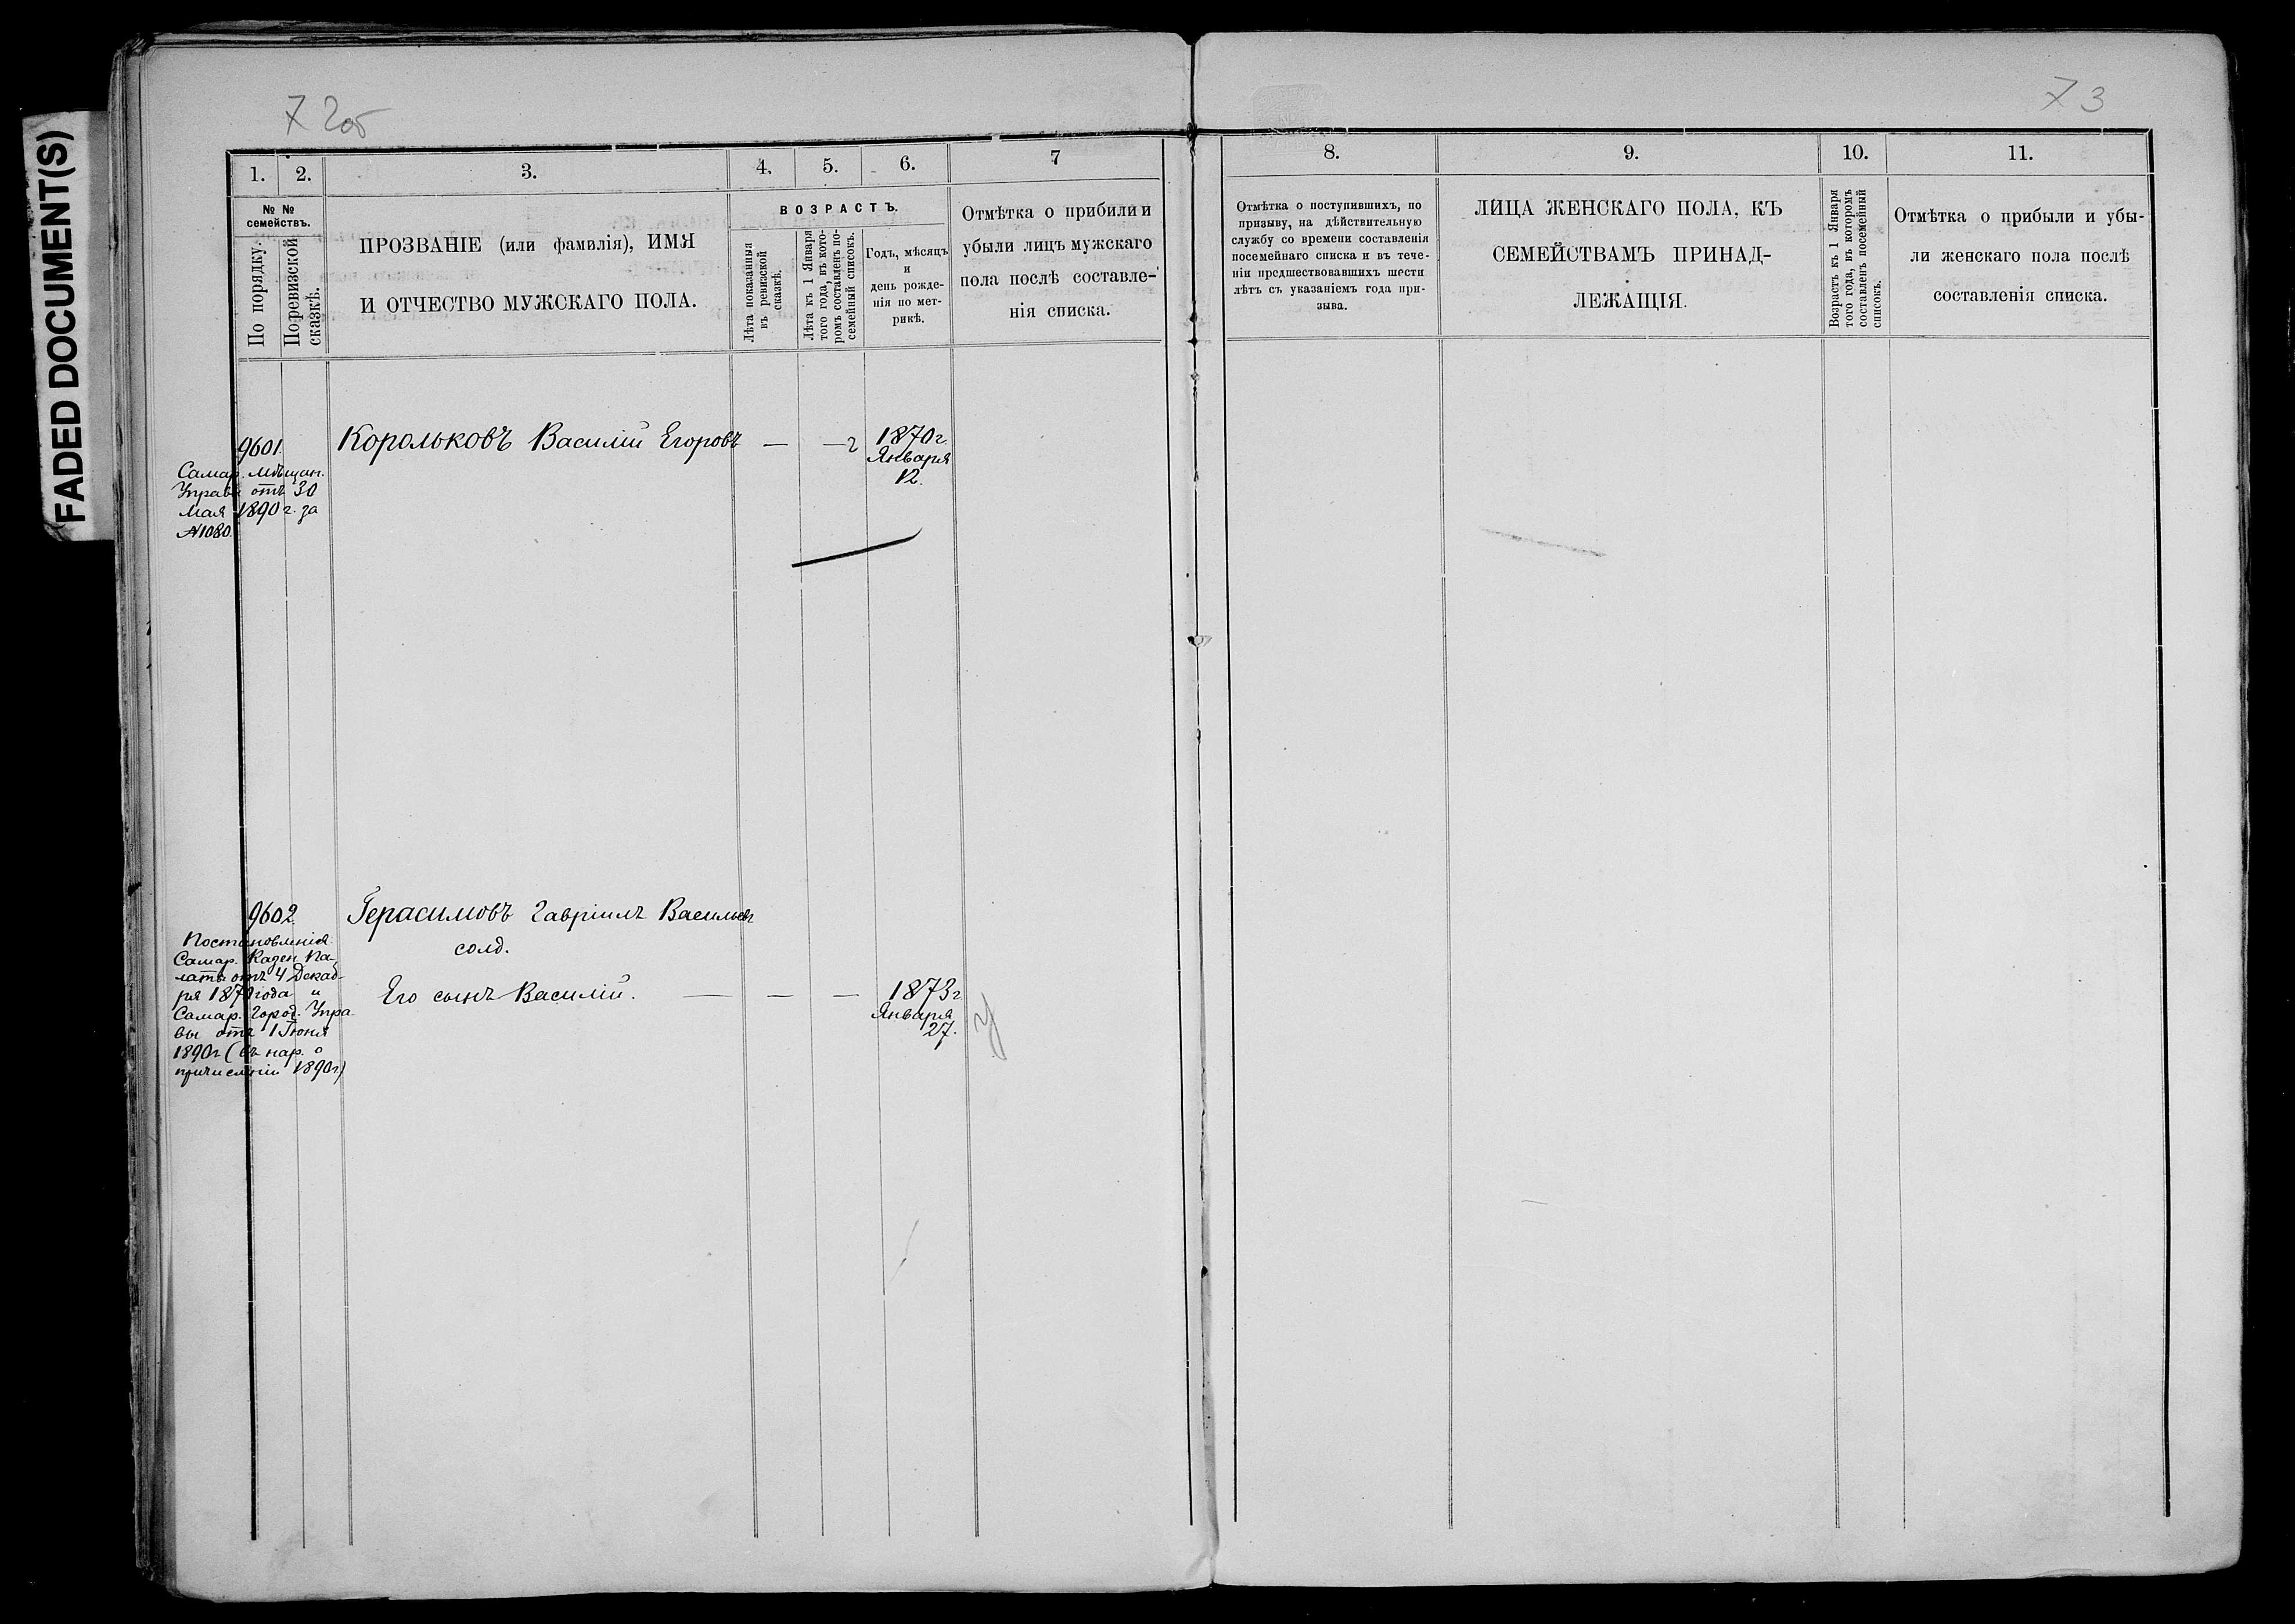 FADED DOCUMENT(S)
72об
73
1.
2.
3.
4.
5.
6.
7
8.
9.
10.
11.
№ №
семействъ.
По порядку.
По ревизской
сказкѣ.
ПРОЗВАНІЕ (или фамилія), ИМЯ
И ОТЧЕСТВО МУЖСКАГО ПОЛА.
ВОЗРАСТЪ.
Лѣта показанныя
въ ревизской
сказкѣ.
Лѣта къ 1 Января
того года, въ кото-
ромъ составленъ по-
семейный списокъ.
Годъ, мѣсяцъ
и
день рожде-
нія по мет-
рикѣ.
Отмѣтка о прибыли и
убыли лицъ мужскаго
пола послѣ составле-
нія списка.
Отмѣтка о поступившихъ, по
призыву, на дѣйствительную
службу со времени составленія
посемейнаго списка и въ тече-
ніи предшествовавшихъ шести
лѣтъ съ указаніемъ года при-
зыва.
ЛИЦА ЖЕНСКАГО ПОЛА, КЪ
СЕМЕЙСТВАМЪ ПРИНАД-
ЛЕЖАЩІЯ.
Возрастъ къ 1 Января
того года, въ которомъ
составленъ посемейный
списокъ.
Отмѣтка о прибыли и убы-
ли женскаго пола послѣ
составленія списка.
9601.
Самар. Мѣщан.
Управы отъ 30
Мая 1890 г. за
№1080.
Корольковъ Василій Егоровъ — —
1870г.
Января
12.
9602
Постановленія
Самар. Казен. Па-
латы отъ 4 Декаб-
ря года и
Самар. Город. Упра-
вы отъ 1 Іюня
1890г (въ нар. о
причисленіи 1890г.)
Герасимовъ Гавріилъ Васильевъ
солд.
Его сынъ Василій. — — —
1873г
Января
27.